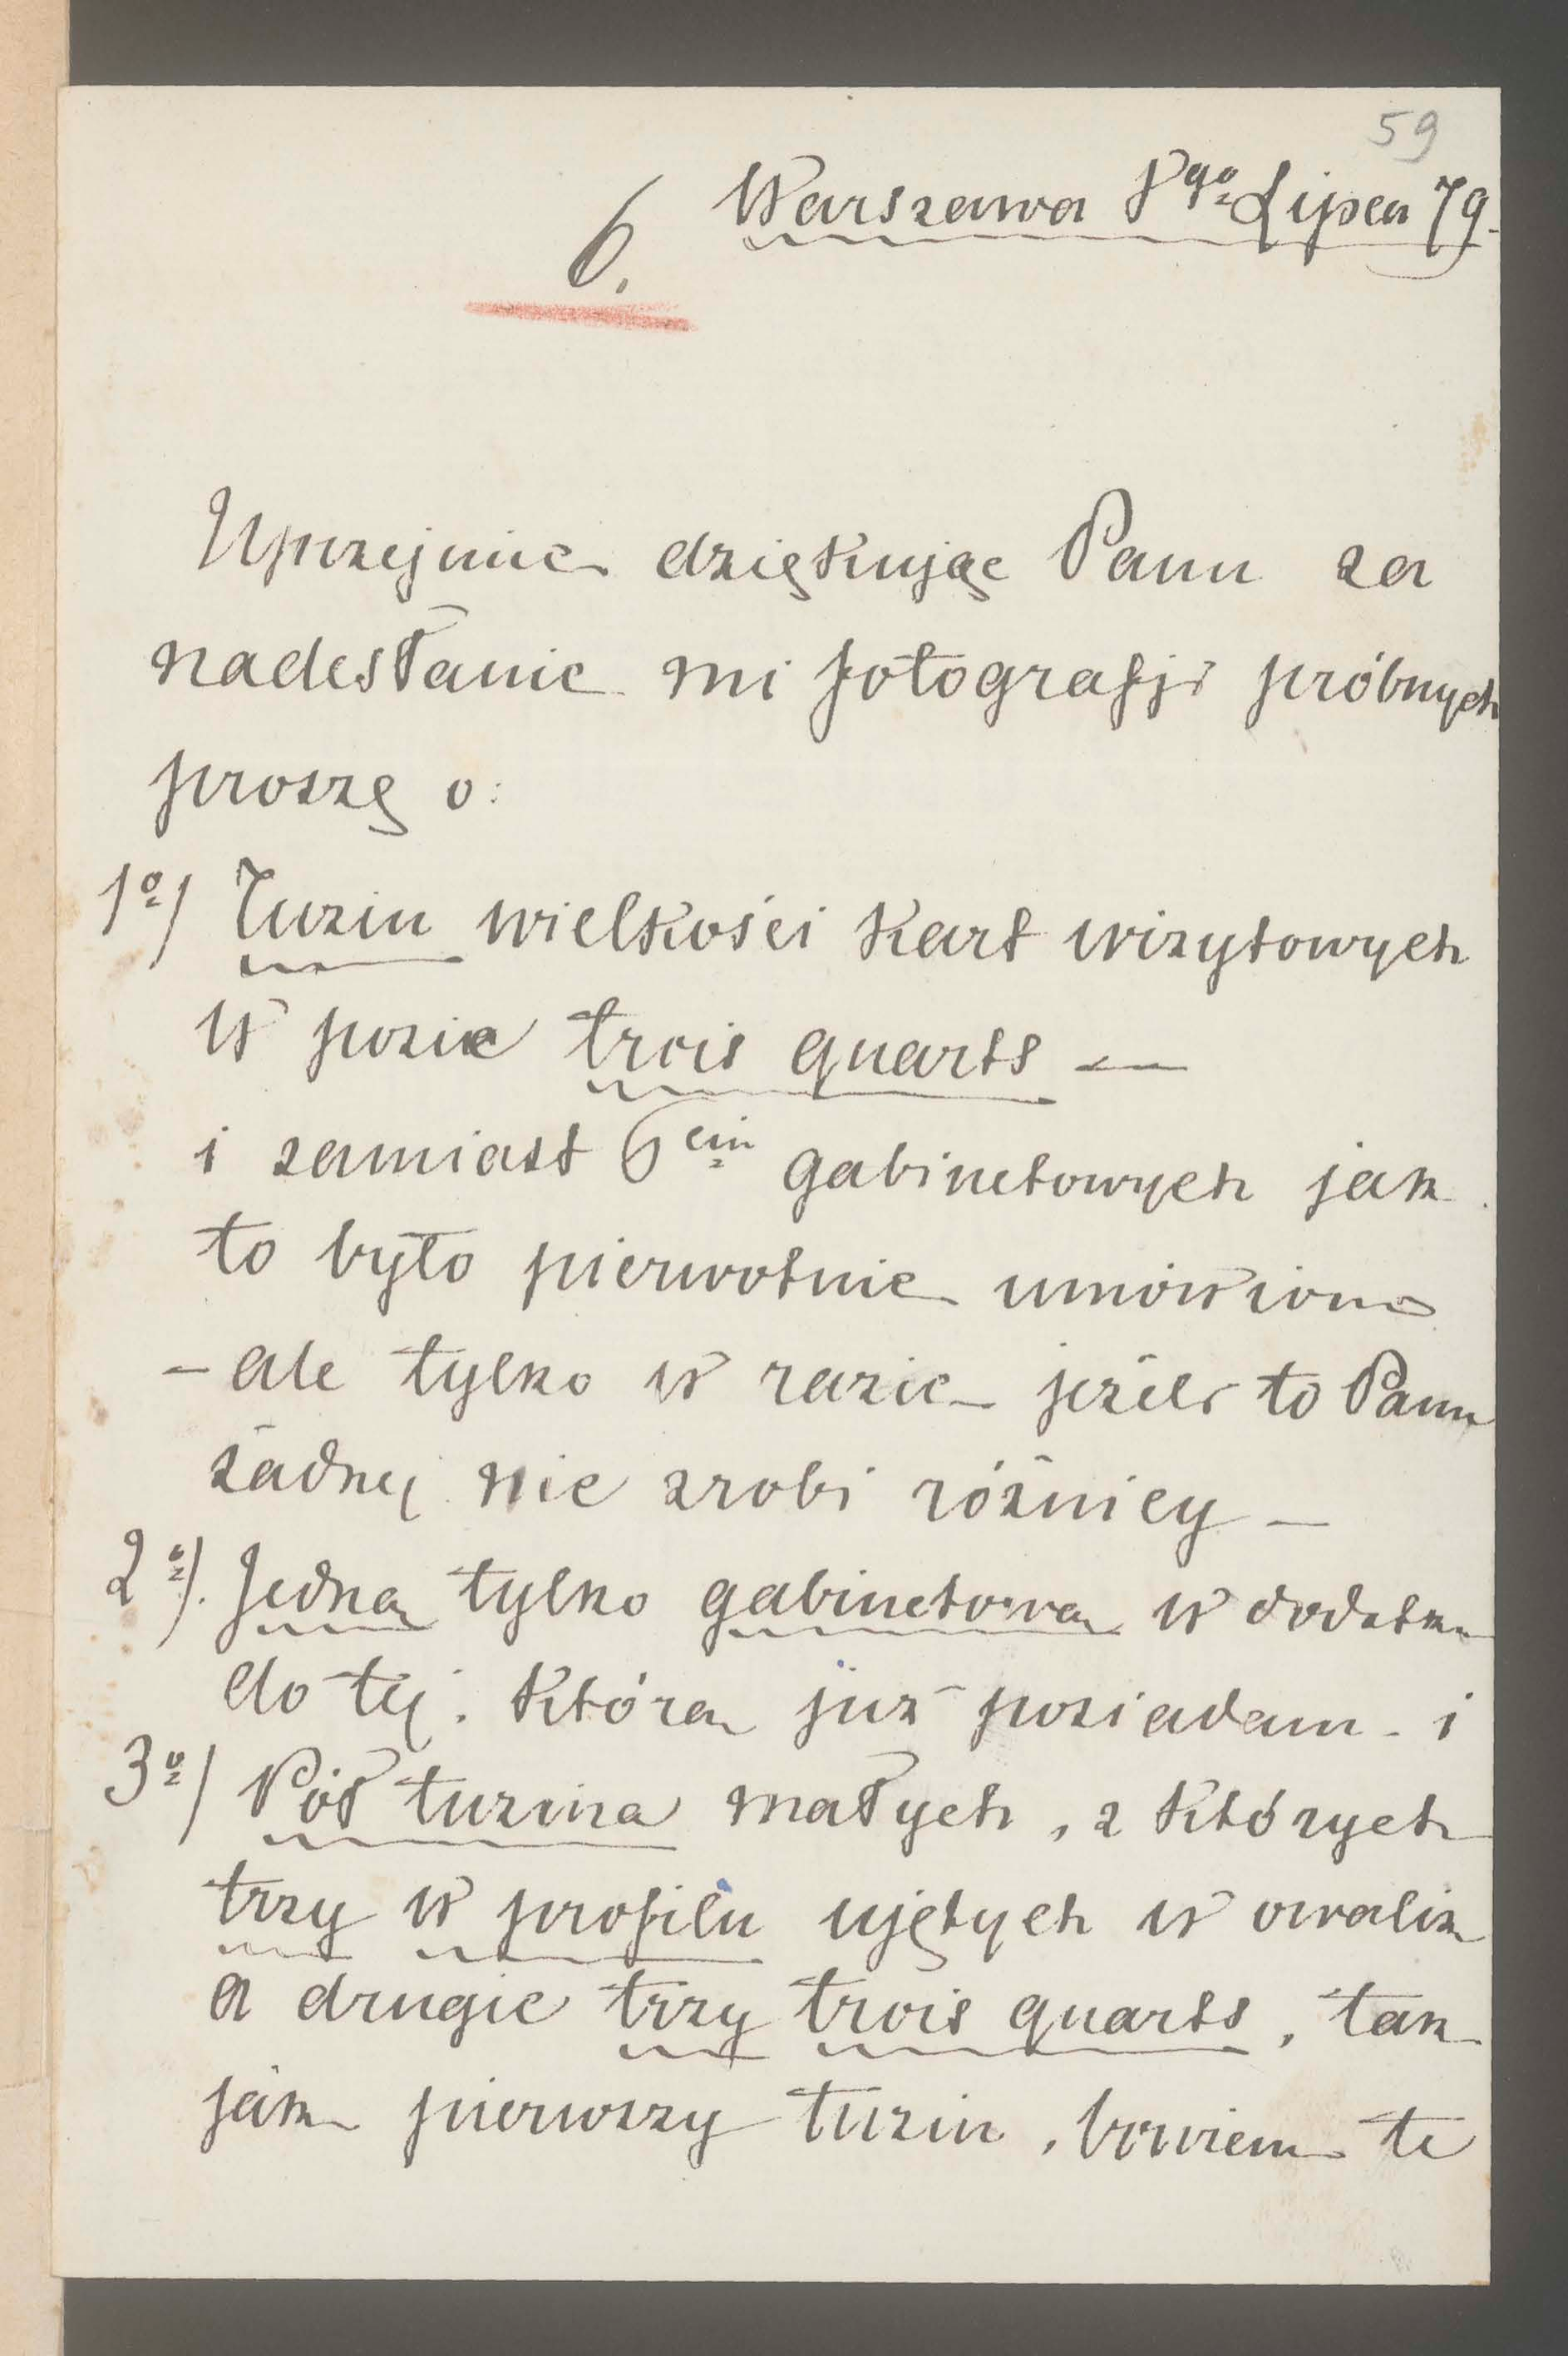 59
Warszawa 8go Lipca 79.
6.
Uprzejmie dziękując Panu za
nadesłanie mi fotografji próbnych
proszę o:
1o/ Tuzin wielkości kart wizytowych
w pozie trois quarts —
i zamiast 6ciu gabinetowych jak
to było pierwotnie umówiono
– ale tylko w razie jeżeli to Panu
żadnej nie zrobi różnicy –
2o/. Jedna tylko gabinetowa w dodatku
do tej. która już posiadam – i
3o/ Pół tuzina małych, z których
trzy w profilu ujętych w owalik
a drugie trzy trois quarts, tak
jak pierwszy tuzin, bowiem te